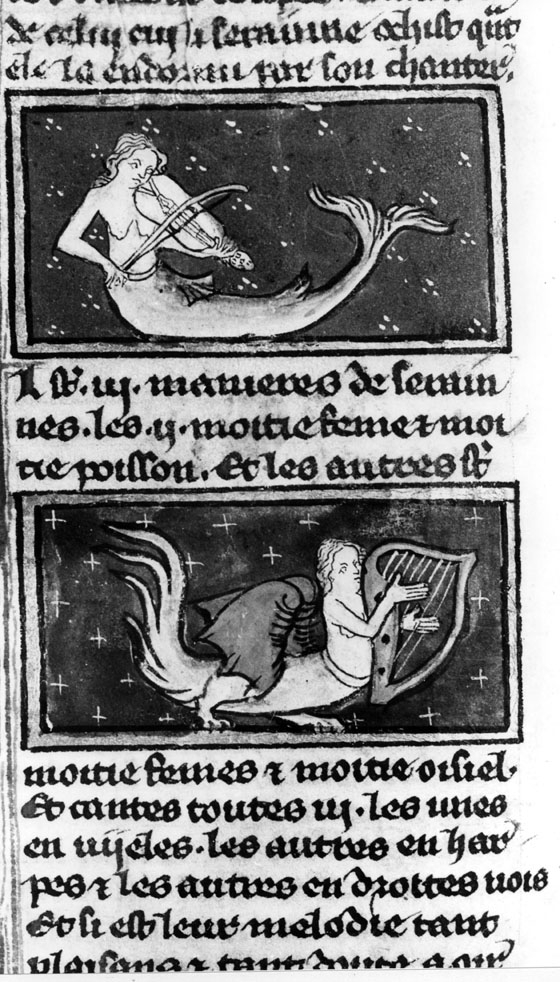 de celui cui li seraine ochist qant
ele la endormi par son chanter.
I st. iij. manieres de serain
nes. les. ij. moitie feme ⁊ moi
tie poisson. Et les autres st
moitie femes ⁊ moitie oisiel
Et cantes toutes iij. les unes
en vijeles. les autres en har
pes ⁊ les autres en droites vois
Et si est leur melodie tant
plaisans ⁊ tant douce a oir